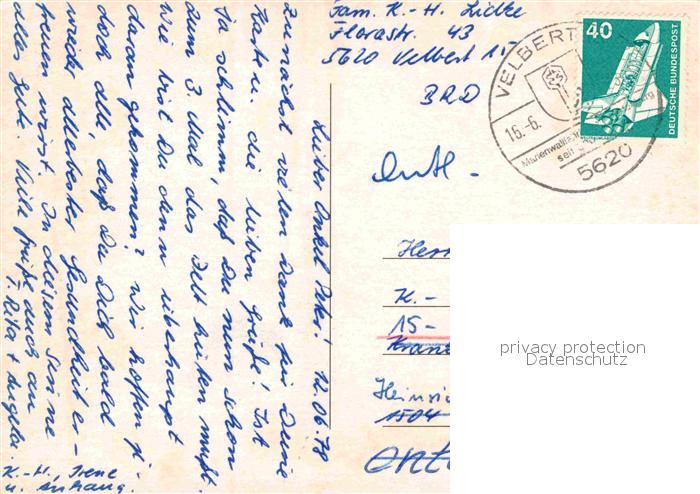 Fam. K.-H. Lidke
Florastr. 43
5620 Velbert 15
BRD
40
DEUTSCHE BUNDESPOST
VELBERT
16.-6.
seit
5620
Lieber Onkel Peter! 12.06.78
Zunächst vielen Dank für Deine
Karte u. die lieben Grüße! Ist
ja schlimm, daß Du nun schon
zum 3. Mal das Bett hüten mußt.
Wie bist Du denn überhaupt
daran gekommen? Wir hoffen ja
doch alle, daß Du Dich bald
wieder allerbester Gesundheit er-
freuen wirst. In diesem Sinne
alles Gute. Viele Grüße auch an
T. Rita + Angela.
K.-H., Irene
u. Anhang.
Herr
K.-
15-
Heinri
1504
privacy protection
Datenschutz